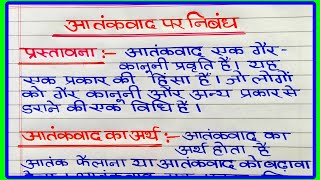 आतंकवाद पर निबंध
प्रस्तावना :- आतंकवाद एक गैर-
कानूनी प्रवृति है। यह
एक प्रकार की हिंसा है। जो लोगों
को गैर कानूनी और अन्य प्रकार से
डराने की एक विधि है।
आतंकवाद का अर्थ :- आतंकवाद का
अर्थ होता है
आतंक फैलाना या आतंकवाद को बढ़ावा